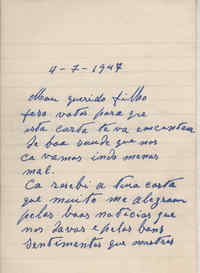 4-7-1947
Meu querido filho
faço votos para que
esta carta te va encontrar
de boa saude que nos
ca vamos indo menos
mal.
Ca recebi a tua carta
que muito me alegram
pelas boas noticias que
nos davas e pelos bons
sentimentos que mostras